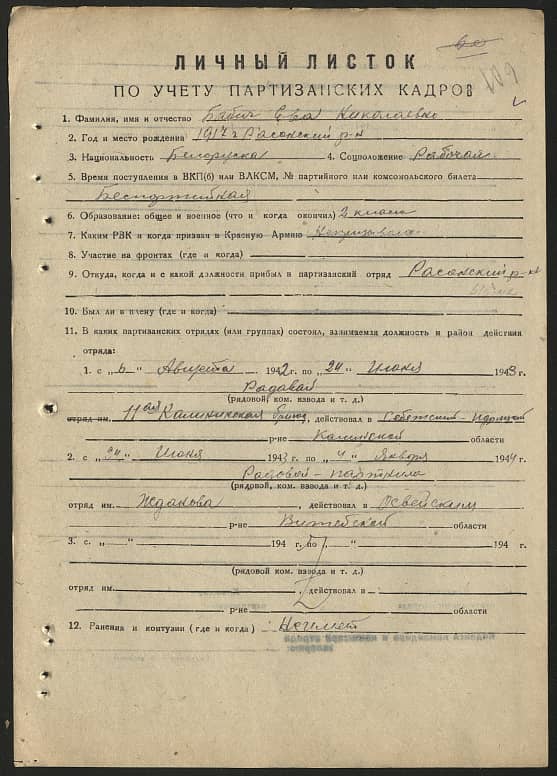 60
109
ЛИЧНЫЙ ЛИСТОК
ПО УЧЕТУ ПАРТИЗАНСКИХ КАДРОВ
1. Фамилия, имя и отчество Бабич Ева Николаевна
2. Год и место рождения 1917 г Расонский р-н
3. Национальность Белоруска 4. Соцположение Рабочая
5. Время поступления в ВКП(б) или ВЛКСМ, № партийного или комсомольского билета
Беспартийная
6. Образование: общее и военное (что и когда окончил) 2 класса
7. Каким РВК и когда призван в Красную Армию
8. Участие на фронтах (где и когда)
9. Откуда, когда и с какой должности прибыл в партизанский отряд Расонский р-н
10. Был ли в плену (где и когда)
11. В каких партизанских отрядах (или группах) состоял, занимаемая должность и район действия
отряда:
1. с „6" Августа 1942 г. по „24" Июня 1943 г.
Радавай
(рядовой, ком. взвода и т. д.)
отряд им. 11ая Калининская бриг, действовал в Себежский-Идрицкой
р-не Калинской области
2. с „24" Июня 1943 г. по „4" Января 1944 г.
Радовой-
(рядовой, ком. взвода и т. д.)
отряд им. Жданова, действовал в Освейскам
р-не Витебской области
3. с. „ " 194 г. по „ " 194 г.
(рядовой, ком. взвода и т. д.)
отряд им. действовал в
р-не области
12. Ранения и контузии (где и когда)